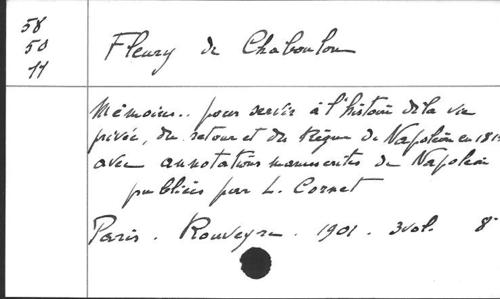 58
50
11
Fleury de Chaboulon
Mémoires.. pour servir à l'histoire de la vie
privée, du retour et du Règne de Napoléon en 1815
avec annotations manuscrites de Napoléon
publiées par L. Cornet
Paris. Rouveyre. 1901. 3 vol. 8°